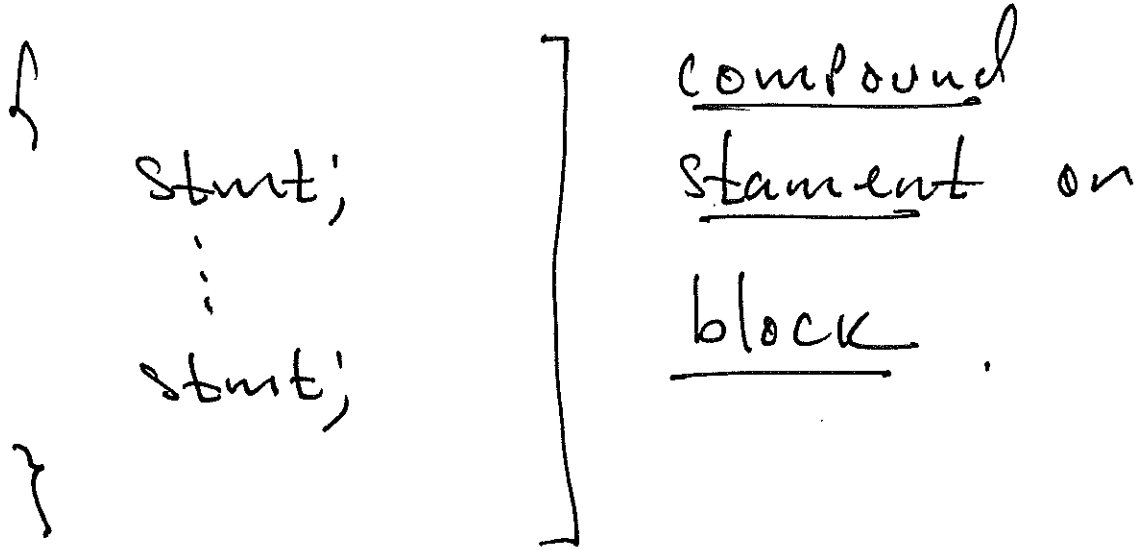 {
stmt;
⋮
stmt;
}
compound
stament or
block.